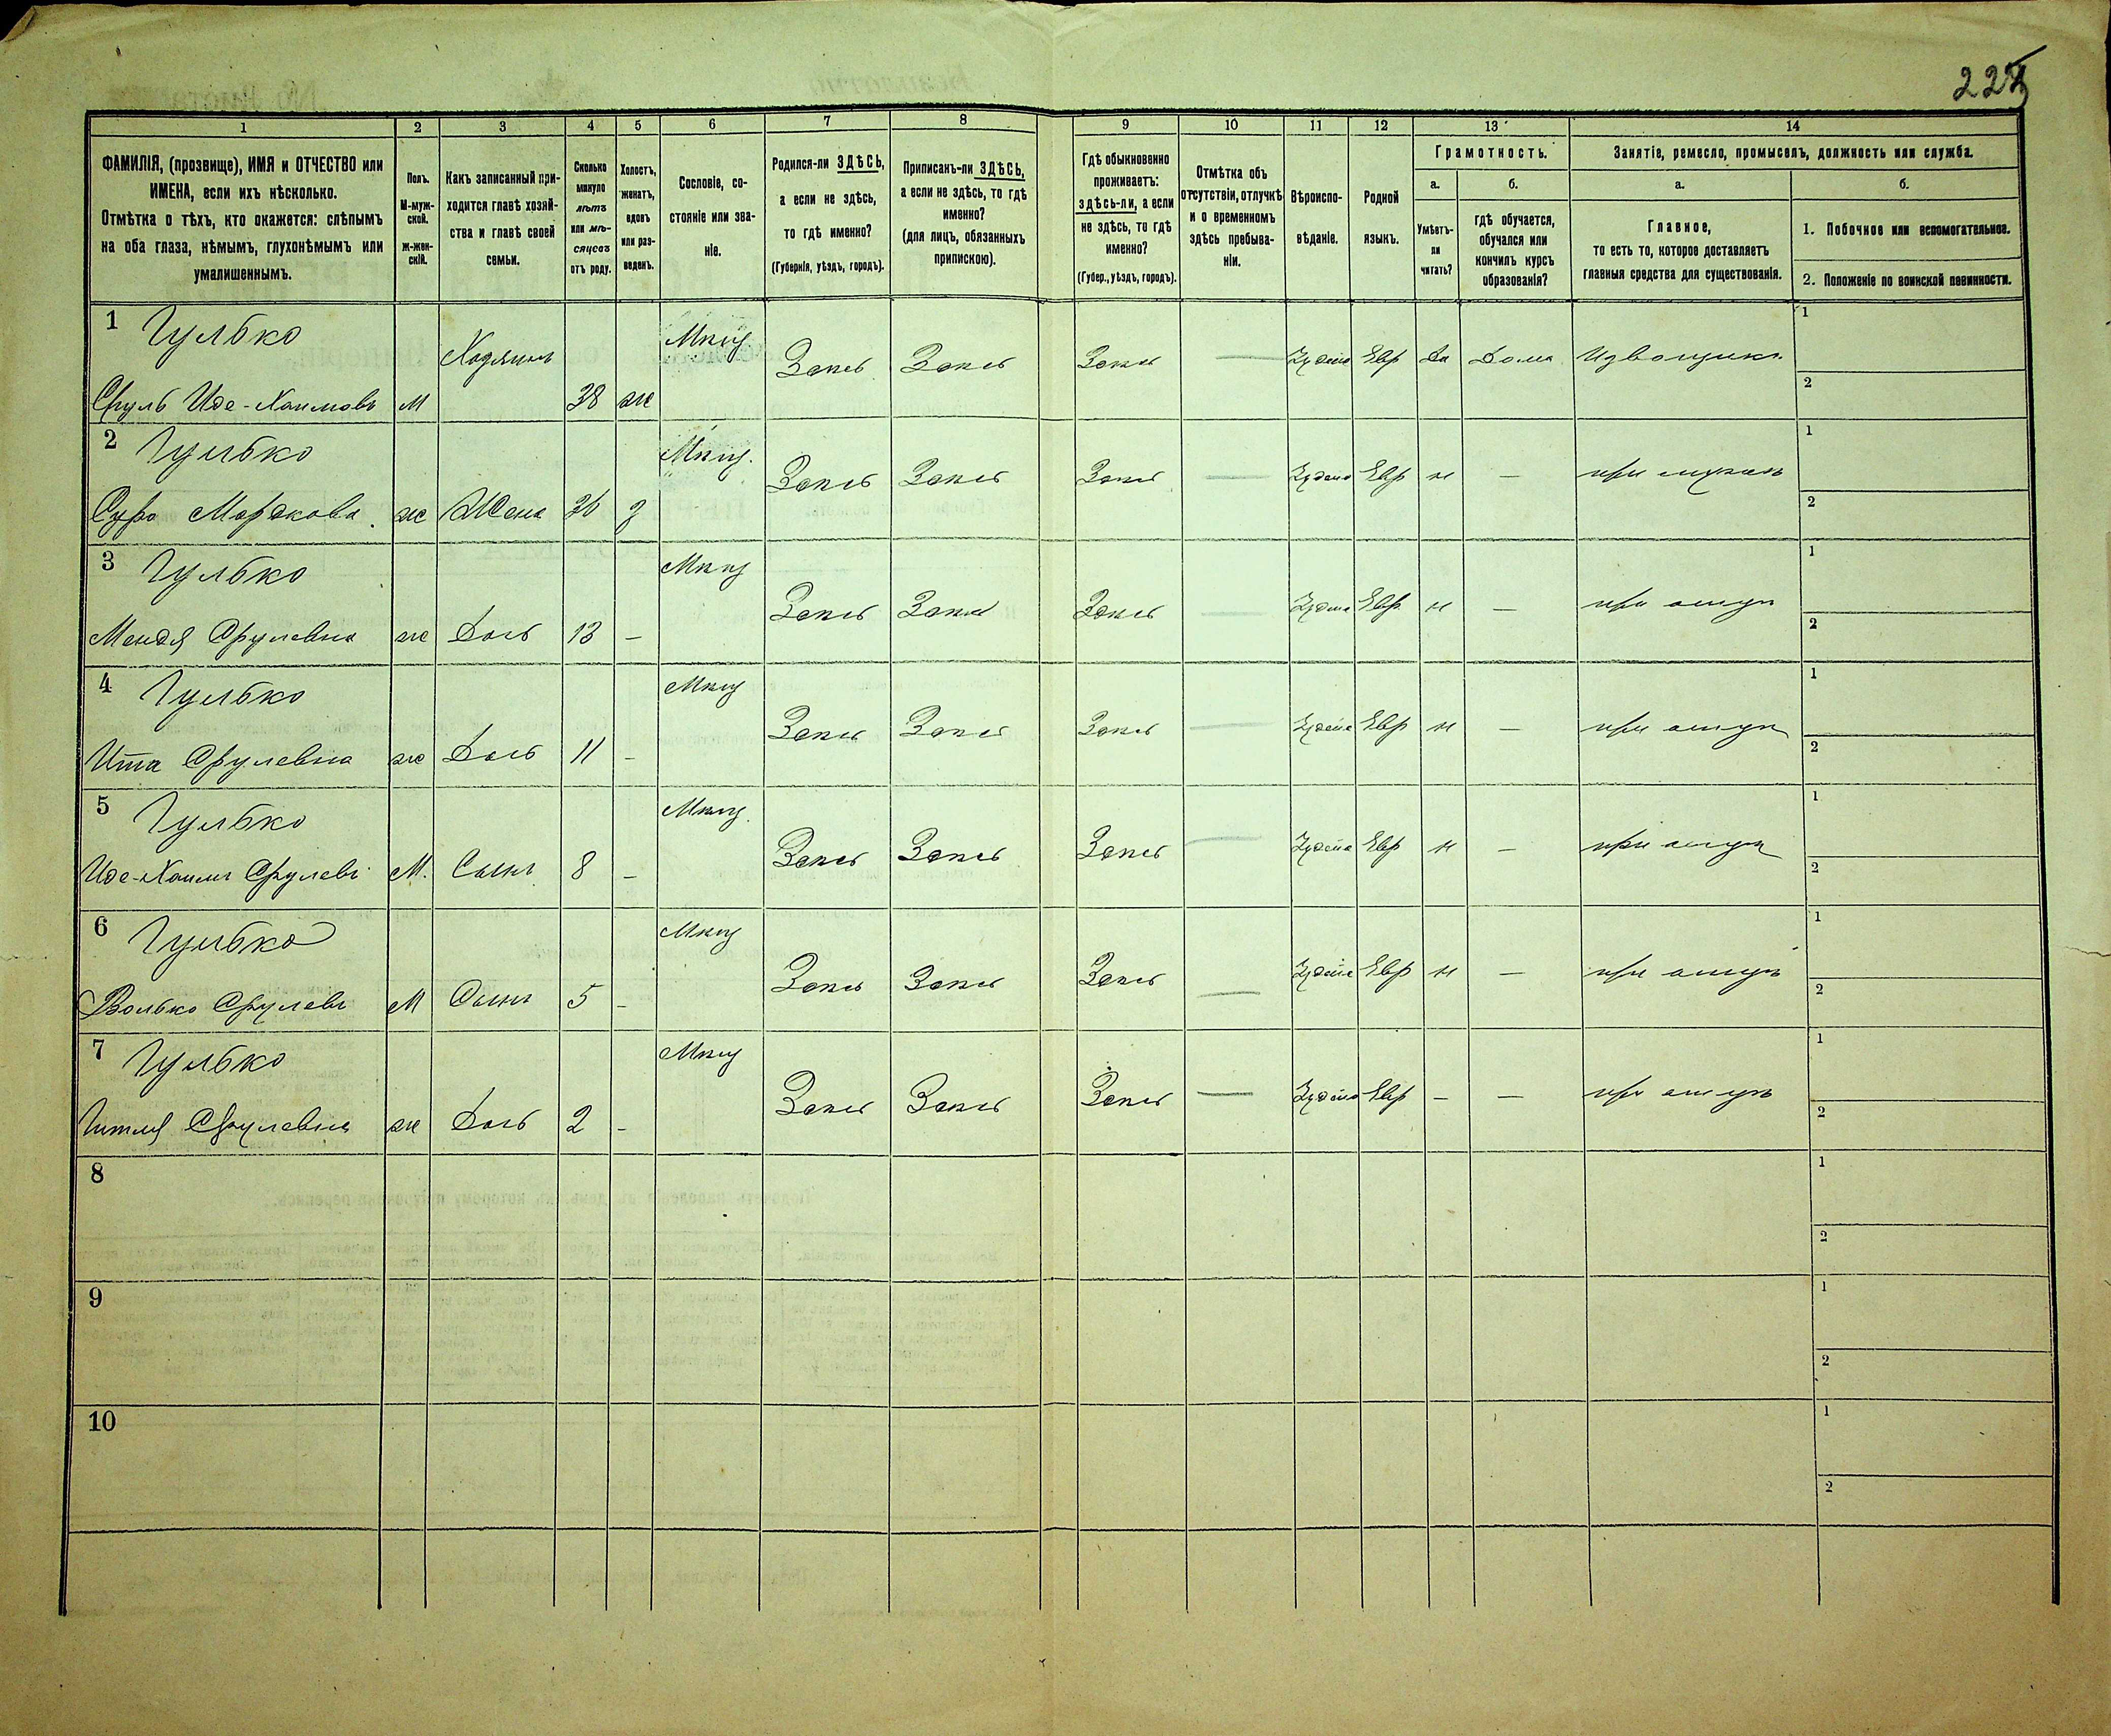 225
1 2 3 4 5 6 7 8 9 10 11 12 13 14
ФАМИЛІЯ, (прозвище), ИМЯ и ОТЧЕСТВО или
ИМЕНА, если ихъ нѣсколько.
Отмѣтка о тѣхъ, кто окажется: слѣпымъ
на оба глаза, нѣмымъ, глухонѣмымъ или
умалишеннымъ.
Полъ.
М-муж-
ской.
ж-жен-
скій.
Какъ записанный при-
ходится главѣ хозяй-
ства и главѣ своей
семьи.
Сколько
минуло
лѣтъ
или мѣ-
сяцевъ
отъ роду.
Холостъ,
женатъ,
вдовъ
или раз-
веденъ.
Сословіе, со-
стояніе или зва-
ніе.
Родился-ли ЗДѢСЬ,
а если не здѣсь,
то гдѣ именно?
(Губернія, уѣздъ, городъ).
Приписанъ-ли ЗДѢСЬ,
а если не здѣсь, то гдѣ
именно?
(для лицъ, обязанныхъ
припискою).
Гдѣ обыкновенно
проживаетъ:
здѣсь-ли, а если
не здѣсь, то гдѣ
именно?
(Губер., уѣздъ, городъ).
Отмѣтка объ
отсутствіи, отлучкѣ
и о временномъ
здѣсь пребыва-
ніи.
Вѣроиспо-
вѣданіе.
Родной
языкъ.
Грамотность.
а.
Умѣетъ-
ли
читать?
б.
гдѣ обучается,
обучался или
кончилъ курсъ
образованія?
Занятіе, ремесло, промыселъ, должность или служба.
а.
Главное,
то есть то, которое доставляетъ
главныя средства для существованія.
б.
1. Побочное или вспомогательное.
2. Положеніе по воинской повинности.
1 Гулько
Сруль Иде-Хаимовъ М Хозяинъ 38 ж Мѣщ Здѣсь Здѣсь Здѣсь — Іудейс Евр да Дома Извощикъ 1 2
2 Гулько
Сура Мордкова ж Жена 36 з Мѣщ. Здѣсь Здѣсь Здѣсь — Іудейс Евр н — при мужѣ 1 2
3 Гулько
Мендя Срулевна ж Дочь 13 — Мѣщ Здѣсь Здѣсь Здѣсь — Іудейс Евр н — при отцѣ 1 2
4 Гулько
Ита Срулевна ж Дочь 11 — Мѣщ Здѣсь Здѣсь Здѣсь — Іудейс Евр н — при отцѣ 1 2
5 Гулько
Иде-Хаимъ Срулевъ М. Сынъ 8 — Мѣщ. Здѣсь Здѣсь Здѣсь — Іудейс Евр н — при отцѣ 1 2
6 Гулько
Волько Срулевъ М Сынъ 5 — Мѣщ Здѣсь Здѣсь Здѣсь — Іудейс Евр н — при отцѣ 1 2
7 Гулько
Гитля Срулевна ж Дочь 2 — Мѣщ Здѣсь Здѣсь Здѣсь — Іудейс Евр — — при отцѣ 1 2
8 1 2
9 1 2
10 1 2